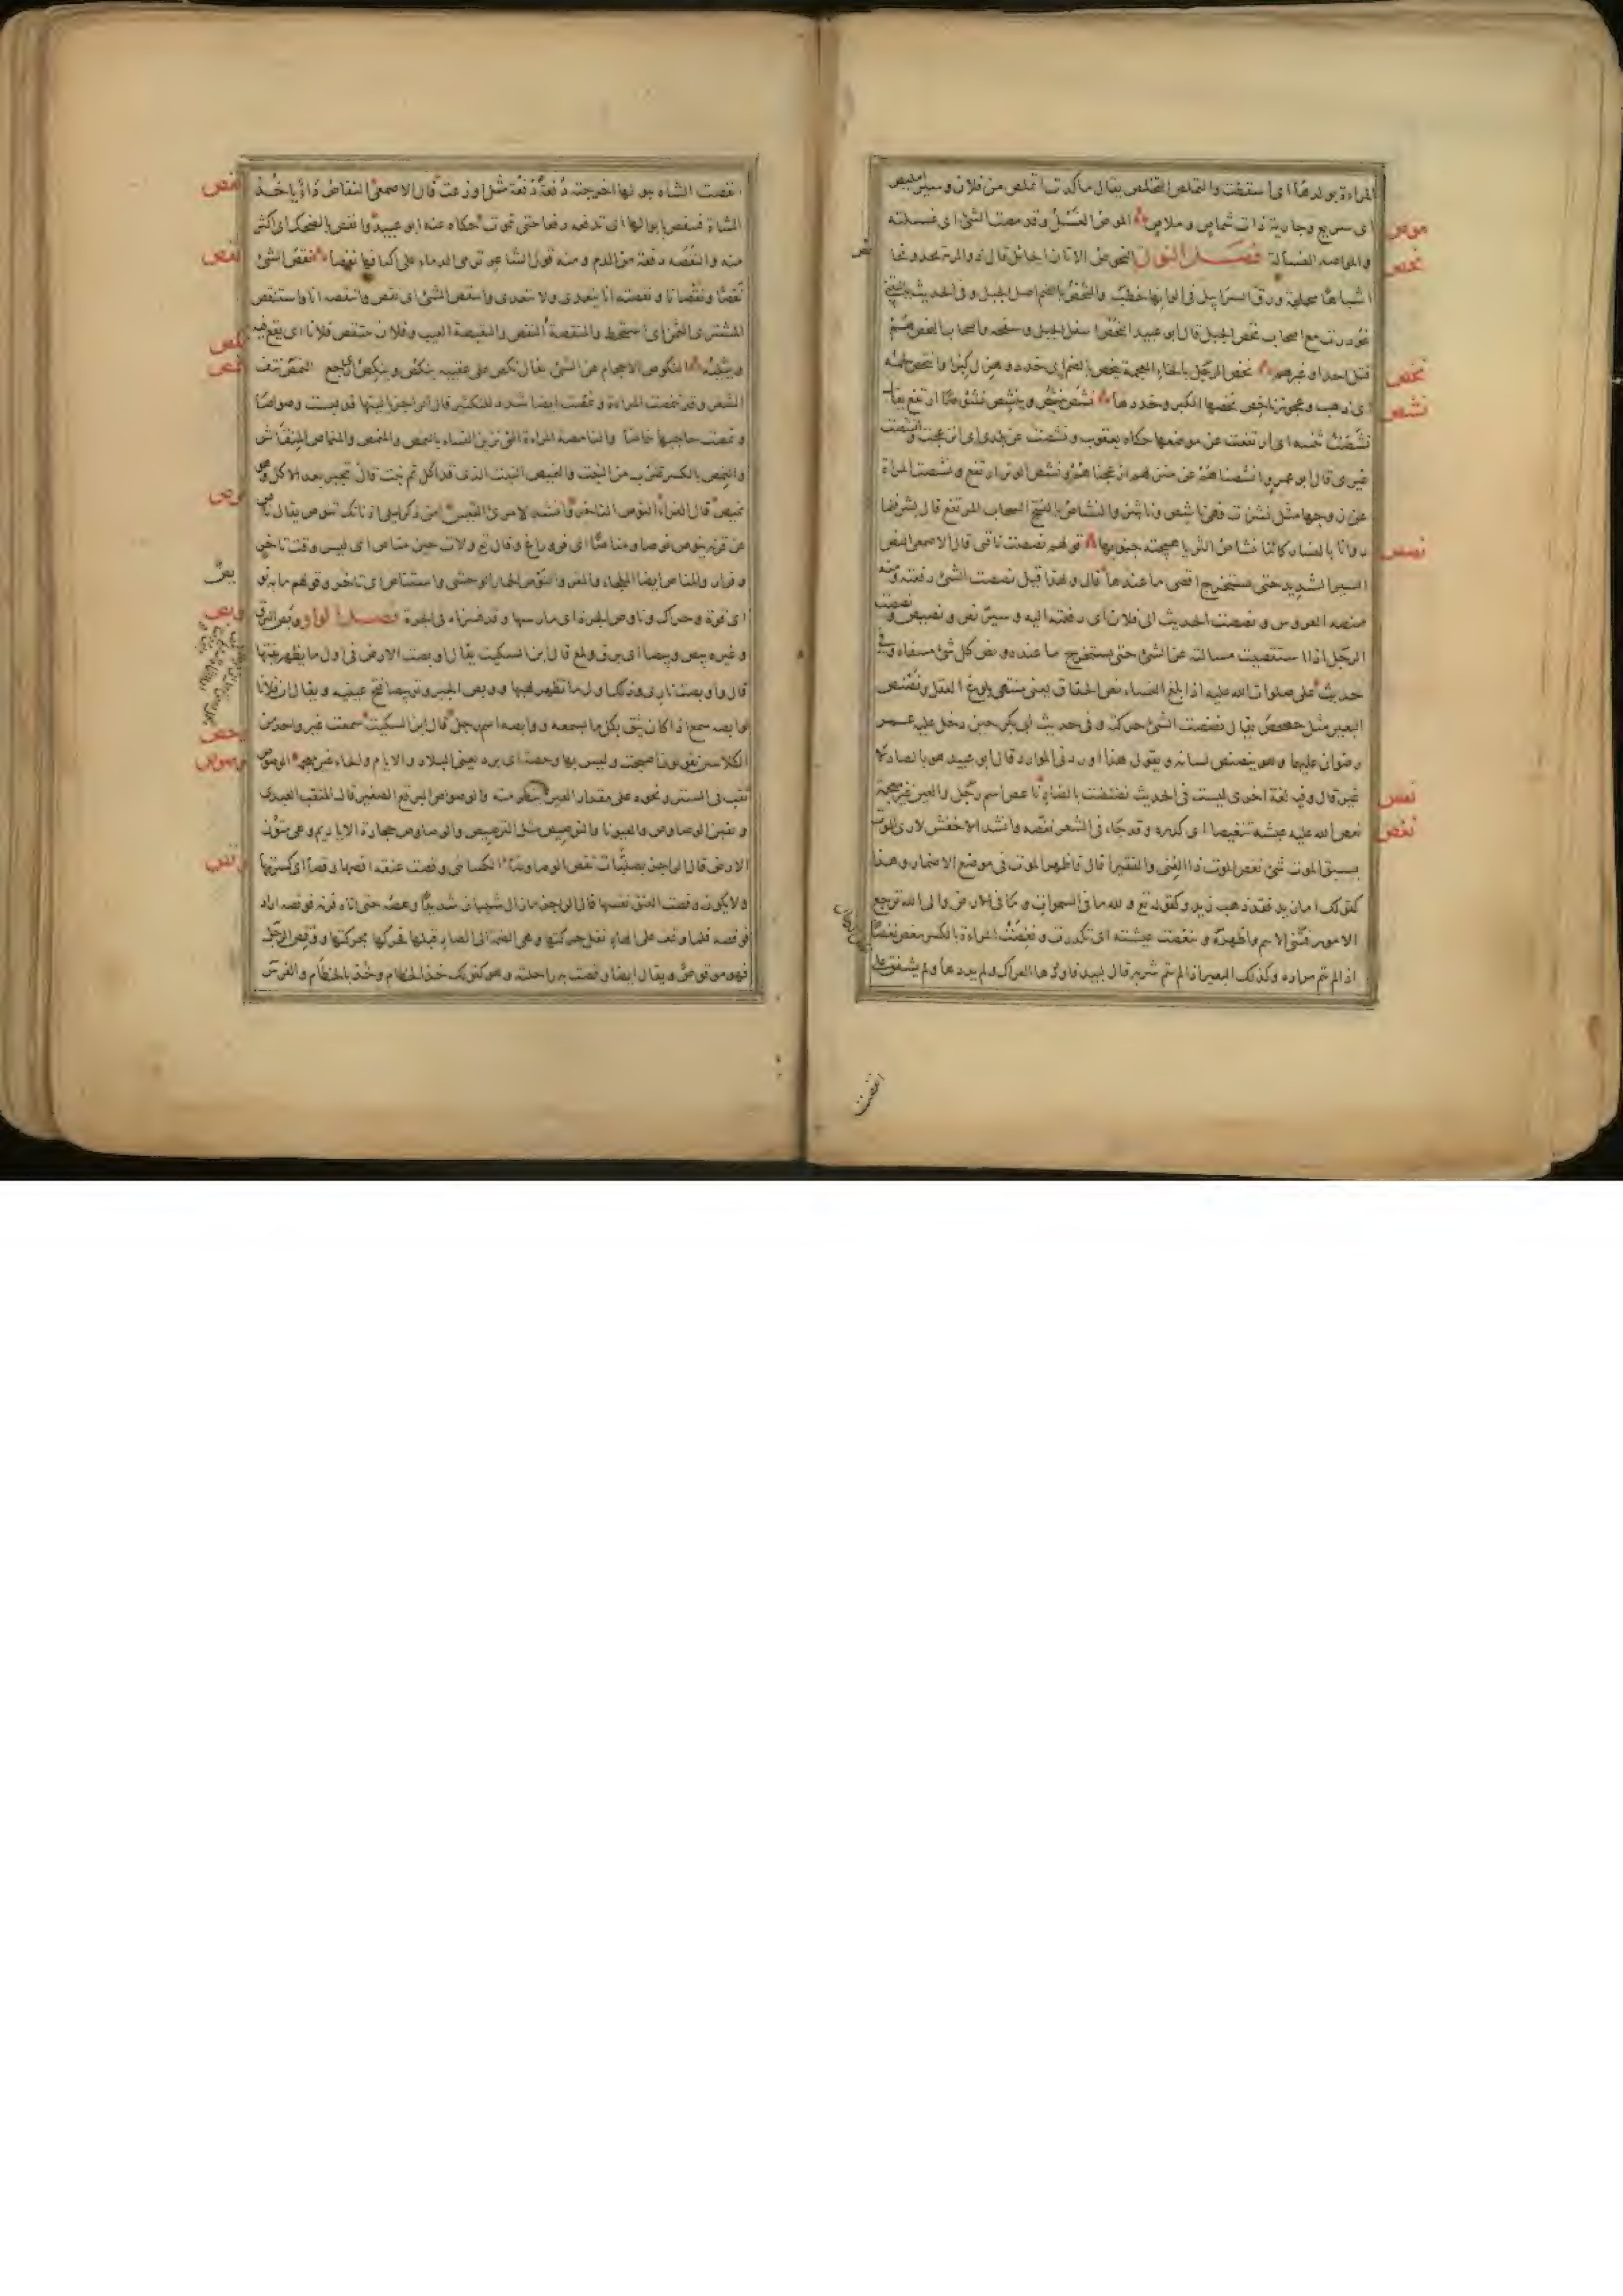 المراءة بولدها اى اسقطت والتملص التخلص يقال ما كدت اتملص من فلان وسير امليص
موص
اى سريع وجارية ذات شماص وملاص الموص الغسل وقد مصت الشئ اى غسلته
نحص
والمواصة الغسالة فصل النون النحوص الاتان الحائل قال ذو الرمة يحدو نحائص
اشباها محملجة ورق السرابيل فى الوانها خطب والنحص بالضم اصل الجبل وفى الحديث يا ليتنى
غودرت مع اصحاب نحص الجبل قال ابو عبيد النحص اسفل الجبل وسفحه واصحاب النحص هم
نخص
قتلى احد او غيرهم نخص الرجل بالخاء المعجمة ينخص بالضم اى خدد وهزل كبرا وانتخص لحمه
نشص
اى ذهب وعجوز ناخص نخصها الكبر وخددها نشص ينشص وينشص نشوصا ارتفع يقال
نشصت ثنيته اى ارتفعت عن موضعها حكاه يعقوب ونشصت عن بلدى اى انزعجت وانشصت
غيرى قال ابو عمرو انشصناهم عن منزلهم ازعجناهم ونشص الوتر ارتفع ونشصت المراة
عن زوجها مثل نشزت فهى ناشص وناشز والنشاص بالفتح السحاب المرتفع قال بشر فلما
نصص
راونا بالنسار كاننا نشاص الثريا هيجته جنوبها قولهم نصصت ناقتى قال الاصمعى النص
السير الشديد حتى يستخرج اقصى ما عندها قال ولهذا قيل نصصت الشئ رفعته ومنه
منصة العروس ونصصت الحديث الى فلان اى رفعته اليه وسير نص ونصيص ونصصت
الرجل اذا استقصيت مسالته عن الشئ حتى يستخرج ما عنده ونص كل شئ منتهاه وفى
حديث على صلوات الله عليه اذا بلغ النساء نص الحقاق يعنى منتهى بلوغ العقل ونصنص
البعير مثل حصحص يقال نصنصت الشئ حركته وفى حديث ابى بكر حين دخل عليه عمر
رضوان عليهما وهو ينصنص لسانه ويقول هذا اوردنى الموارد قال ابو عبيد هو بالصاد لا
نعص
غير قال وفيه لغة اخرى ليست فى الحديث نضنضت بالضاد ناعص اسم رجل والعين غير معجمة
نغص
نغص الله عليه عيشه تنغيصا اى كدره وقد جاء فى الشعر نغصه وانشد الاخفش لا ارى الموت
يسبق الموت شئ نغص الموت ذا الغنى والفقيرا قال فاظهر الموت فى موضع الاضمار وهذا
كقولك اما زيد فقد ذهب زيد وكقوله تع ولله ما فى السموات وما فى الارض والى الله ترجع
الامور فثنى الاسم واظهره وتنغصت عيشته اى تكدرت ونغصت المراءة بالكسر نغص نغصا
اذا لم يتم مراده وكذلك البعير اذا لم يتم شربه قال لبيد فاوردها العراك ولم يذدها ولم يشفق على
انفصت
نفص
انفصت الشاة ببولها اخرجته دفعة دفعة مثل اوزعت قال الاصمعى النفاص داؤ ياخذ
الشاة فتنفص بابوالها اى تدفعه دفعا حتى تموت حكاه عنه ابو عبيد وانفص بالضحك اى اكثر
نقص
منه والنفصة دفعة من الدم ومنه قول الشاعر ترمى الدماء على اكتافها نفصا نقص الشئ
نقصا ونقصانا ونقصته انا يتعدى ولا يتعدى وانتقص الشئ اى نقص وانتقصته انا واستنقص
المشترى الثمن اى استحط والمنقصة النقص والنقيصة العيب وفلان ينتقص فلانا اى يقع فيه
نكص
نمص
ويثلبه النكوص الاحجام عن الشئ يقال نكص على عقبيه ينكص وينكص اى رجع النمص نتف
الشعر وقد تنمصت المراءة ونمصت ايضا شدد للتكثير قال الراجز يا ليتها قد لبست وصواصا
ونمصت حاجبها تنماصا والنامصة المراءة التى تزين النساء بالنمص والمنمص والمنماص المنقاش
والنمص بالكسر ضرب من النبت والنميص النبت الذى قد اكل ثم نبت قال تجبر بعد الاكل فهو
نوص
نميص قال الفراء النوص التاخر وانشد لامرئ القيس امن ذكر ليلى اذ ناتك تنوص يقال ناص
عن قرنه ينوص نوصا ومناصا اى فر وراغ وقال تع ولات حين مناص اى ليس وقت تاخر
وفرار والمناص ايضا الملجاء والمفر والنوص الحمار الوحشى واستناص اى تاخر وقولهم ما به نويص
وبص
اى قوة وحراك وناوص الجرة اى مارسها وقد فسرناه فى الجرة فصل الواو وبص البرق
وغيره يبص وبيصا اى برق ولمع قال ابن السكيت يقال اوبصت الارض فى اول ما يظهر نبتها
قال واوبصت نارى وذلك اول ما تظهر لهبها ووبص الجرو توبيصا فتح عينيه ويقال ان فلانا
وحص
لوابصة سمع اذا كان يثق بكل ما يسمعه ووابصة اسم رجل قال ابن السكيت سمعت غير واحد من
وصوص
الكلابيين يقول اصبحت وليس بها وحصة اى برد يعنى البلاد والايام والحاء غير معجمة الوصوص
ثقب فى الستر ونحوه على مقدار العين ينظر منه والوصواص البرقع الصغير قال المثقب العبدى
وثقبن الوصاوص للعيونا والتوصيص مثل الترصيص والوصاوص حجارة الاياديم وهى متون
وقص
الارض قال الراجز بصلبات تقص الوصاوصا الكسائى وقصت عنقه اقصها وقصا اى كسرتها
ولا يكون وقصت العنق نفسها قال الراجز ما زال شيبان شديدا وهصه حتى اتاه قرنه فوقصه اراد
فوقصه فلما وقف على الهاء نقل حركتها وهى الضمة الى الصاد قبلها فحركها بحركتها ووقص الرجل
فهو موقوص ويقال ايضا وقصت به راحلته وهو كقولك خذ الخطام وخذ بالخطام والفرس